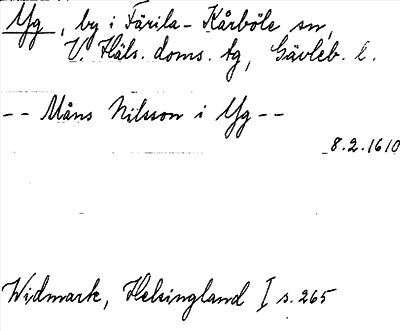 Yg, by i Färila-Kårböle sn,
V. Häls. doms. tg, Gävleb. l.
-- Måns Nilsson i Yg --
8.2.1610
Widmark, Helsingland I s. 265